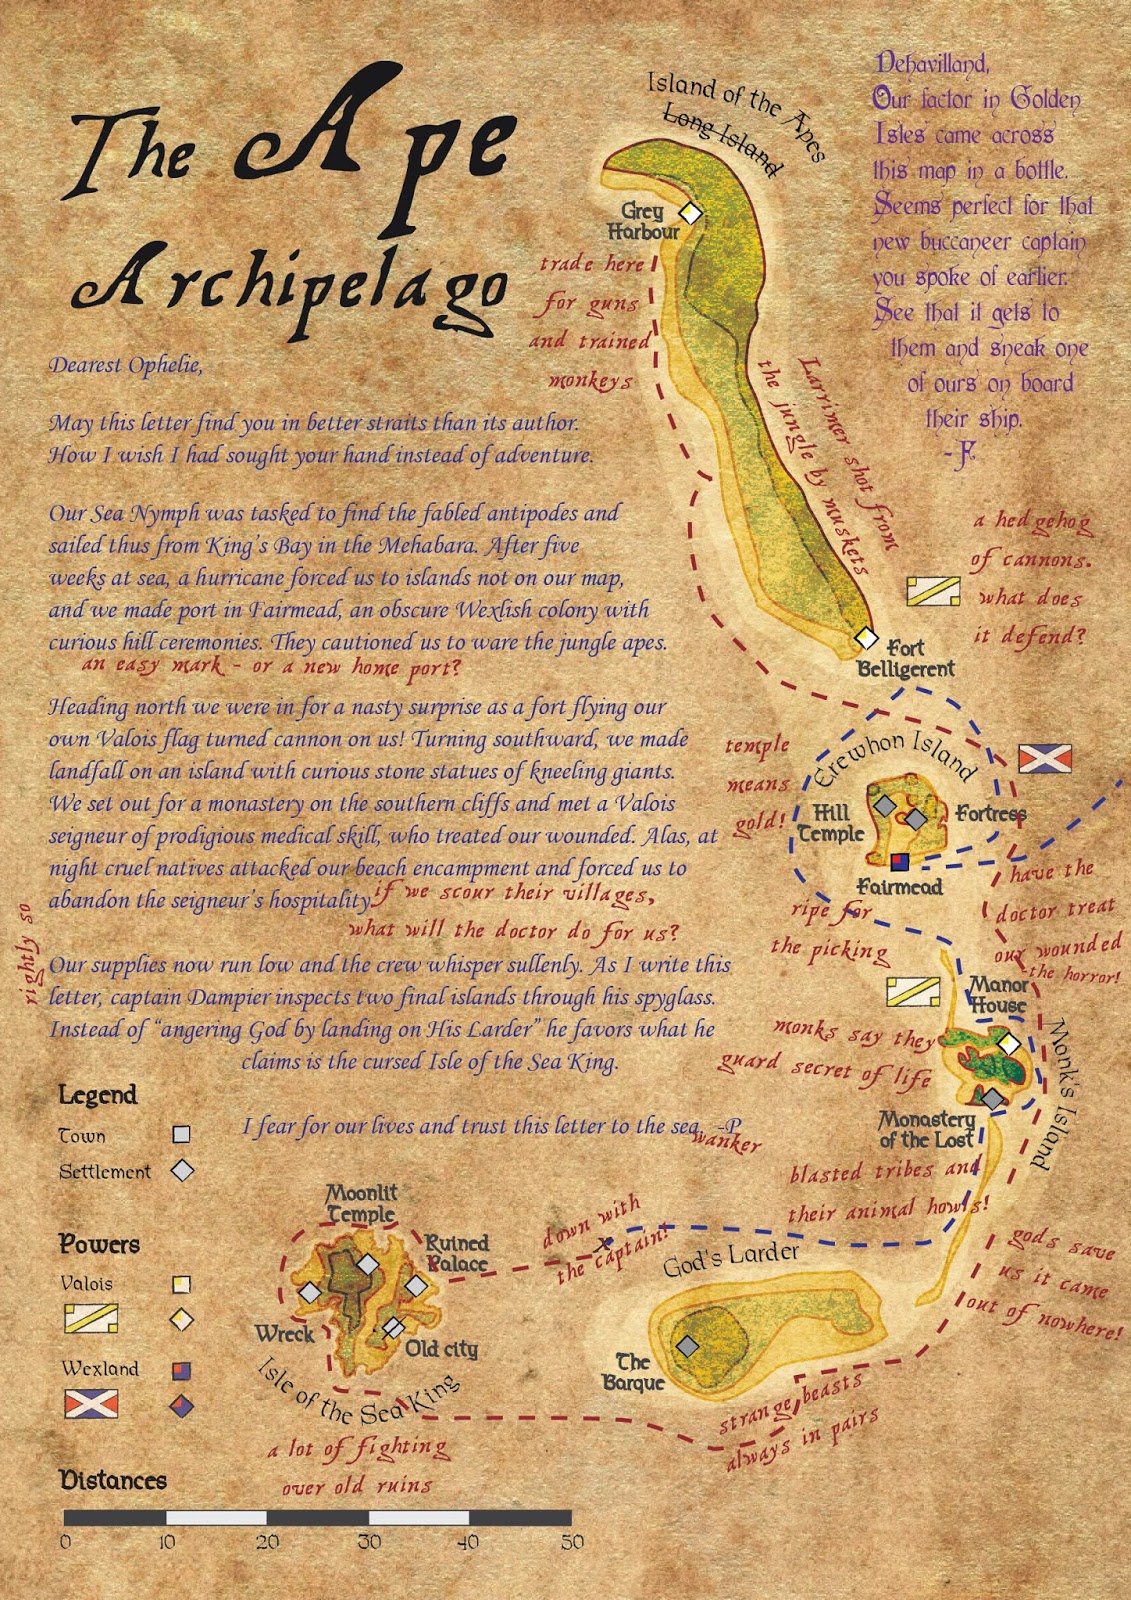 The Ape
Archipelago
Dehavilland,
Our factor in Golden
Isles came across
this map in a bottle.
Seems perfect for that
new buccaneer captain
you spoke of earlier.
See that it gets to
them and sneak one
of ours on board
their ship.
-F
Island of the Apes
Long Island
Grey
Harbour
trade here
for guns
and trained
monkeys
Larrimer shot from
the jungle by muskets
a hedgehog
of cannons.
what does
it defend?
Fort
Belligerent
Dearest Ophelie,
May this letter find you in better straits than its author.
How I wish I had sought your hand instead of adventure.
Our Sea Nymph was tasked to find the fabled antipodes and
sailed thus from King's Bay in the Mehabara. After five
weeks at sea, a hurricane forced us to islands not on our map,
and we made port in Fairmead, an obscure Wexlish colony with
curious hill ceremonies. They cautioned us to ware the jungle apes.
an easy mark - or a new home port?
Heading north we were in for a nasty surprise as a fort flying our
own Valois flag turned cannon on us! Turning southward, we made
landfall on an island with curious stone statues of kneeling giants.
We set out for a monastery on the southern cliffs and met a Valois
seigneur of prodigious medical skill, who treated our wounded. Alas, at
night cruel natives attacked our beach encampment and forced us to
abandon the seigneur's hospitality.
if we scour their villages,
what will the doctor do for us?
rightly so
Our supplies now run low and the crew whisper sullenly. As I write this
letter, captain Dampier inspects two final islands through his spyglass.
Instead of “angering God by landing on His Larder” he favors what he
claims is the cursed Isle of the Sea King.
I fear for our lives and trust this letter to the sea, -P
wanker
Erewhon Island
temple
means
gold!
Hill
Temple
Fortress
Fairmead
ripe for
the picking
have the
doctor treat
our wounded
-the horror!
Manor
House
monks say they
guard secret of life
Monk's Island
Monastery
of the Lost
blasted tribes and
their animal howls!
gods save
us it came
out of nowhere!
down with
the captain!
x
God's Larder
The
Barque
strange beasts
always in pairs
Moonlit
Temple
Ruined
Palace
Wreck
Old city
Isle of the Sea King
a lot of fighting
over old ruins
Legend
Town
Settlement
Powers
Valois
Wexland
Distances
0 10 20 30 40 50